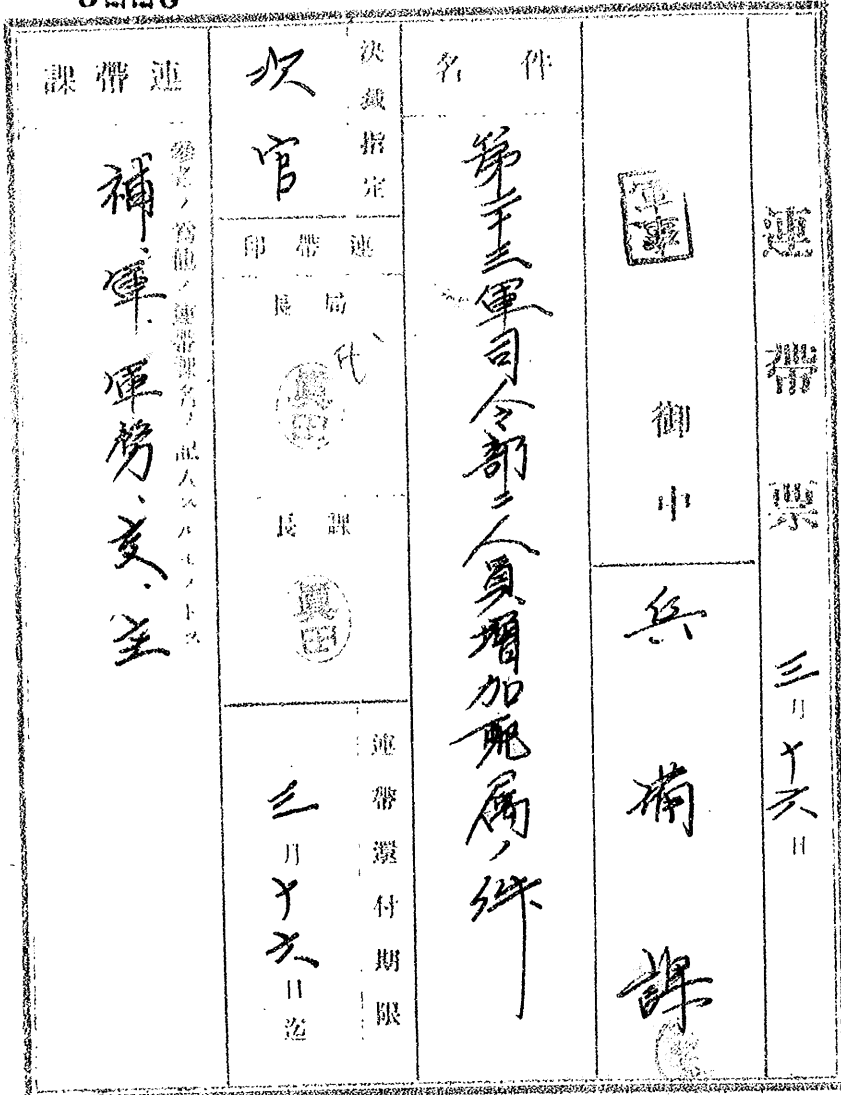 連帶票 三月十六日
軍事 御中
兵備課
件名
第二十三軍司令部ニ人員増加配属ノ件
決裁指定
次官
連帶印
局長
代
眞田
課長
眞田
連帶還付期限
三月十六日迄
連帶課
參考ノ爲他ノ連帶課名ヲ記入スルモノトス
補、軍、軍務、交、主